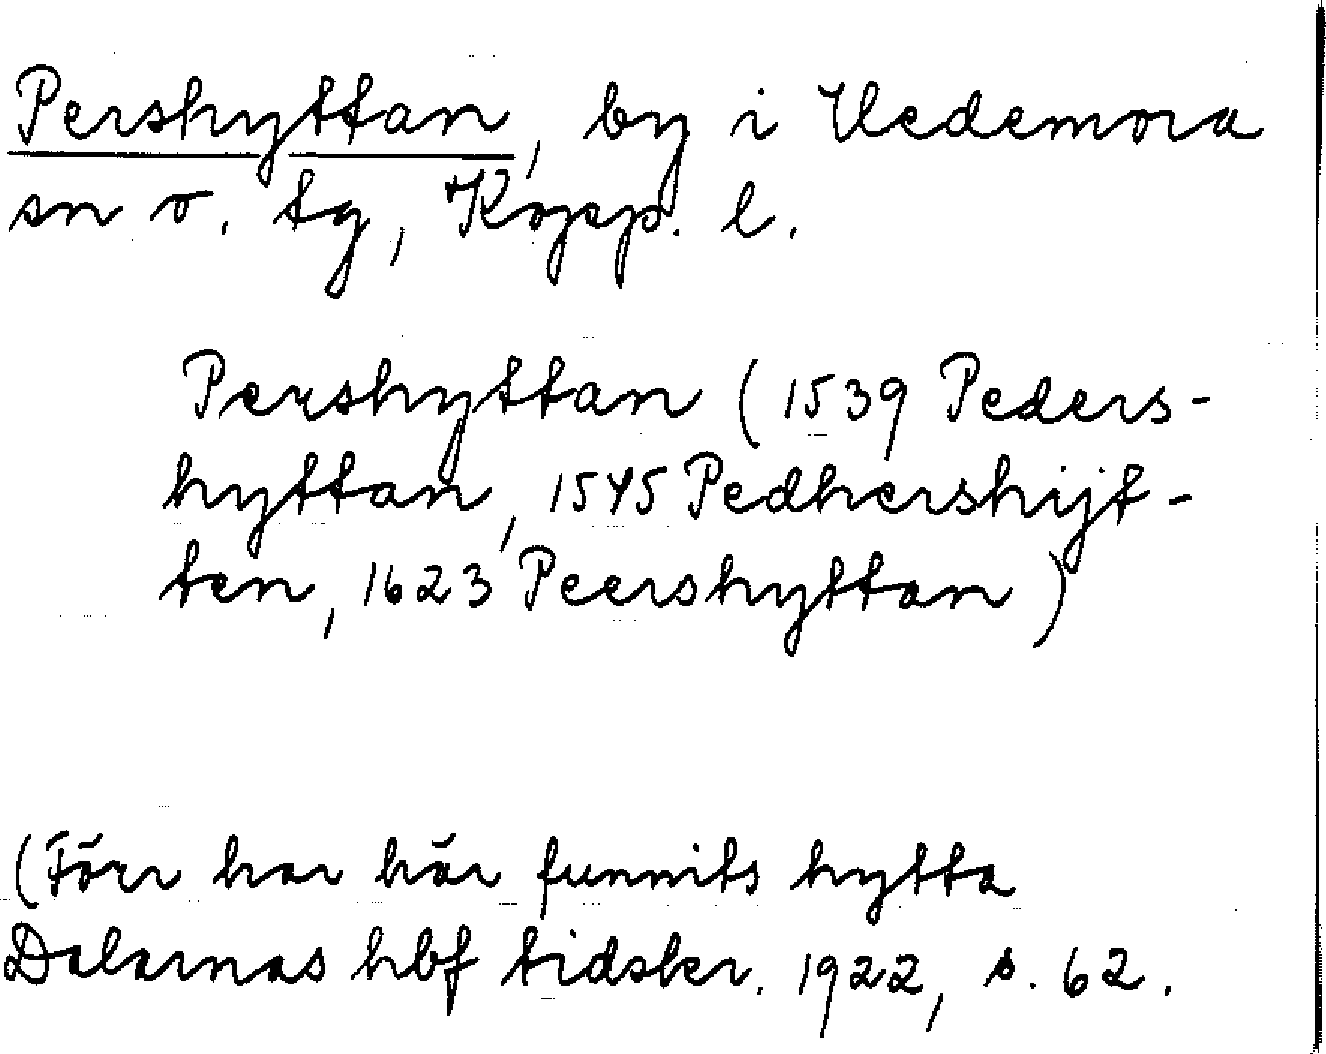 Pershyttan, by i Hedemora
sn o. tg, Kopp. l.
Pershyttan (1539 Peders-
hyttan, 1545 Pedhershijt-
ten, 1623 Peershyttan)
(Förr har här funnits hytta
Dalarnas hbf tidskr. 1922, s. 62.